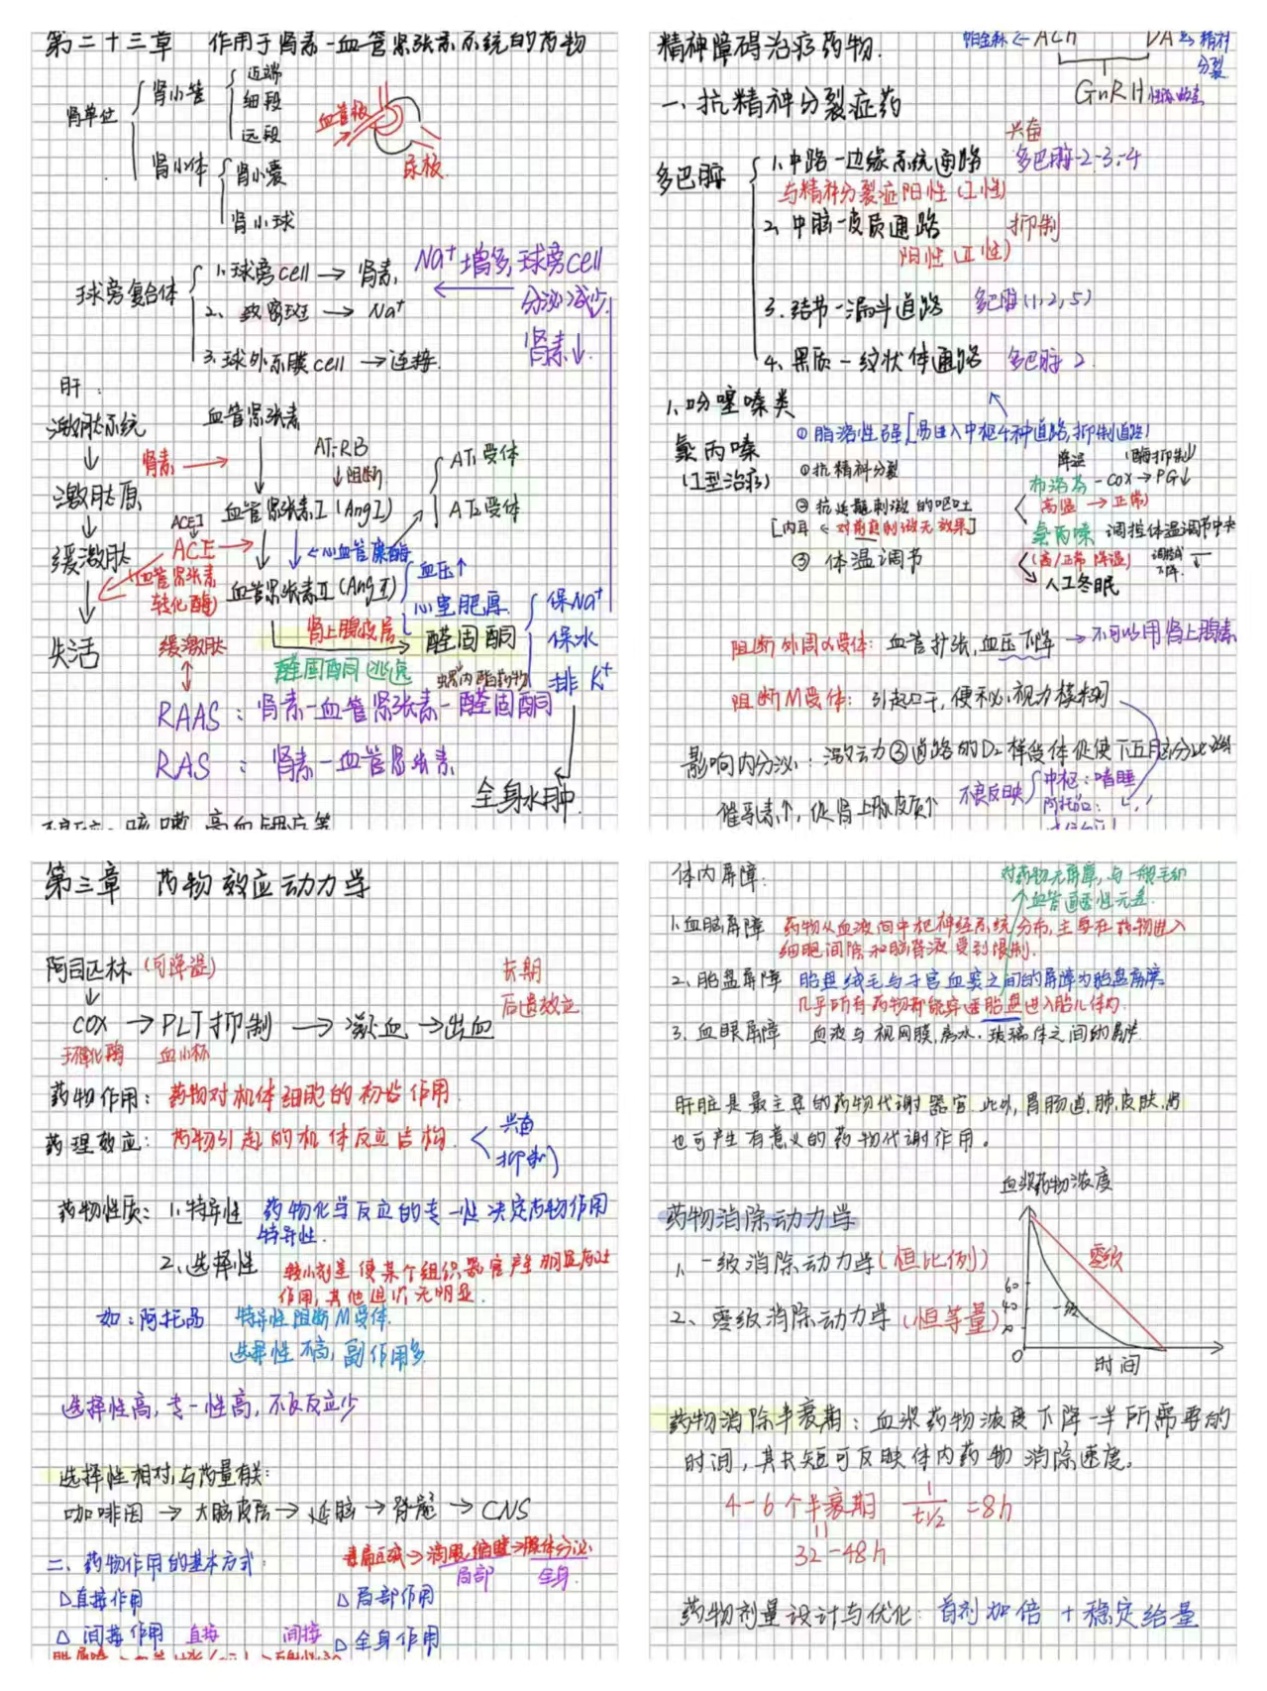 第二十三章 作用于肾素-血管紧张素系统的药物
肾单位
肾小管
近端
细段
远段
肾小体
肾小囊
肾小球
血管极
尿极
球旁复合体
1.球旁cell → 肾素
2. 致密斑 → Na⁺
3.球外系膜cell → 连接.
Na⁺增多,球旁cell
分泌减少.
肾素↓.
肝:
激肽系统
↓
激肽原
↓
缓激肽
↓
失活
血管紧张素
肾素 →
AT₁-RB
↓阻断
血管紧张素I (AngI)
AT₁受体
AT₂受体
ACEI
ACE →
(血管紧张素
转化酶)
←心血管糜酶
血管紧张素II(AngII)
血压↑
心室肥厚
肾上腺皮层
醛固酮
保Na⁺
保水
排K⁺
缓激肽
醛固酮逃逸
螺内酯药物
RAAS: 肾素-血管紧张素-醛固酮
RAS : 肾素-血管紧张素
全身水肿
精神障碍治疗药物.
ACh
DA
精神
分裂
GnRH
一、抗精神分裂症药
多巴胺
兴奋
1.中路-边缘系统通路 多巴胺-2-3-4
与精神分裂症阳性(I性)
2、中脑-皮质通路 抑制
阳性(II性)
3.结节-漏斗通路 多巴胺(1,2,5)
4、黑质-纹状体通路 多巴胺2
1.吩噻嗪类
氯丙嗪
(I型治疗)
①脂溶性强[易进入中枢4种通路,抑制通路]
①抗精神分裂
②抗
刺激的呕吐
[内耳 ← 对前庭刺激无效果]
③ 体温调节
降温 (酶抑制)
布洛芬 - COX → PG↓
高温 → 正常)
氯丙嗪 调控体温调节中枢
(高/正常 降温)
人工冬眠
阻断外周α受体: 血管扩张,血压下降 → 不可以用肾上腺素
阻断M受体: 引起口干,便秘,视力模糊
影响内分泌:
催乳素↑, 促肾上腺皮质↑
不良反映
中枢:嗜睡
阿托品:
第三章 药物效应动力学
阿司匹林 (可降温)
↓
COX → PLT抑制 → 凝血 → 出血
环氧化酶 血小板
长期
后遗效应
药物作用: 药物对机体细胞的初始作用
药理效应: 药物引起的机体反应结构.
兴奋
抑制
药物性质: 1.特异性 药物化学反应的专一性决定药物作用
特异性.
2、选择性 较小剂量使某个组织器官产生明显
作用,其他组织无明显.
如:阿托品 特异性阻断M受体.
选择性不高,副作用多
选择性高,专一性高,不良反应少
选择性相对,与药量有关:
咖啡因 → 大脑皮层 → 延脑 → 脊髓 → CNS
二、药物作用的基本方式:
局部 全身
△直接作用 △局部作用
△ 间接作用 直接 间接 △全身作用
体内屏障.
对药物无屏障,与一般毛细
血管通透性无差.
1.血脑屏障 药物从血液向中枢神经系统分布,主要在药物进入
细胞间隙和脑脊液受到限制.
2、胎盘屏障 胎盘绒毛与子宫血窦之间的屏障为胎盘屏障
几乎所有药物都能穿透胎盘进入胎儿体内.
3、血眼屏障 血液与视网膜,房水.玻璃体之间的屏障
肝脏是最主要的药物代谢器官.此外,胃肠道,肺,皮肤,肾
也可产生有意义的药物代谢作用。
血浆药物浓度
药物消除动力学
1、一级消除动力学(恒比例)
2、零级消除动力学(恒等量)
零级
一级
60
40
0
时间
药物消除半衰期: 血浆药物浓度下降一半所需要的
时间,其长短可反映体内药物消除速度.
4-6个半衰期 1/t1/2 =8h
32-48h
药物剂量设计与优化: 首剂加倍 + 稳定给量